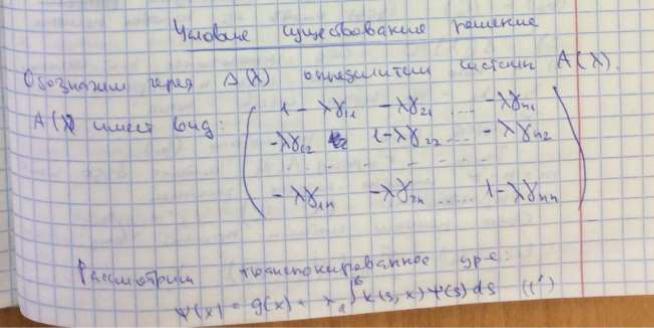 Условие существования решение
Обозначим через Δ(λ) определители системы A(λ).
A(λ) имеет вид:
1 - λγ₁₁  -λγ₂₁ .... -λγₙ₁
-λγ₁₂  1-λγ₂₂ .... -λγₙ₂
. . . . . . . .
-λγ₁ₙ  -λγ₂ₙ ..... 1-λγₙₙ
Рассмотрим транспонированное ур-е:
ψ(x) = g(x) + λ ∫ₐᵇ k(s,x) ψ(s) ds (1')